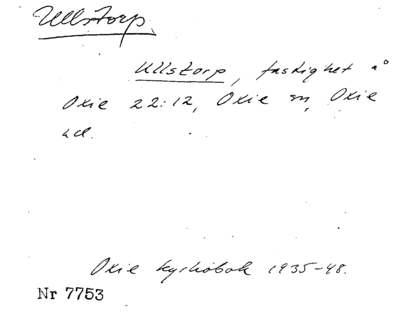 Ullstorp.
Ullstorp, fastighet å
Oxie 22:12, Oxie sn, Oxie
hd.
Oxie kyrkobok 1935-48.
Nr 7753